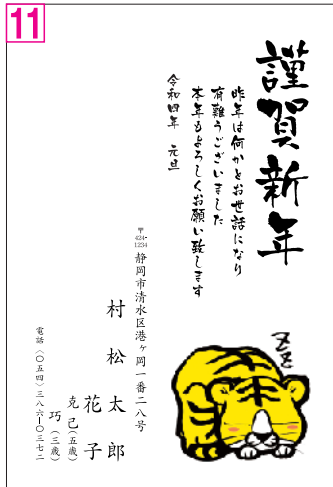 11
謹賀新年
昨年は何かとお世話になり
有難うございました
本年もよろしくお願い致します
令和四年 元旦
〒424-1234 静岡市清水区港ヶ岡一番二八号
村松太郎
花子
克己(五歳)
巧(三歳)
電話(〇五四)三八六ー〇三七二
ZZZ